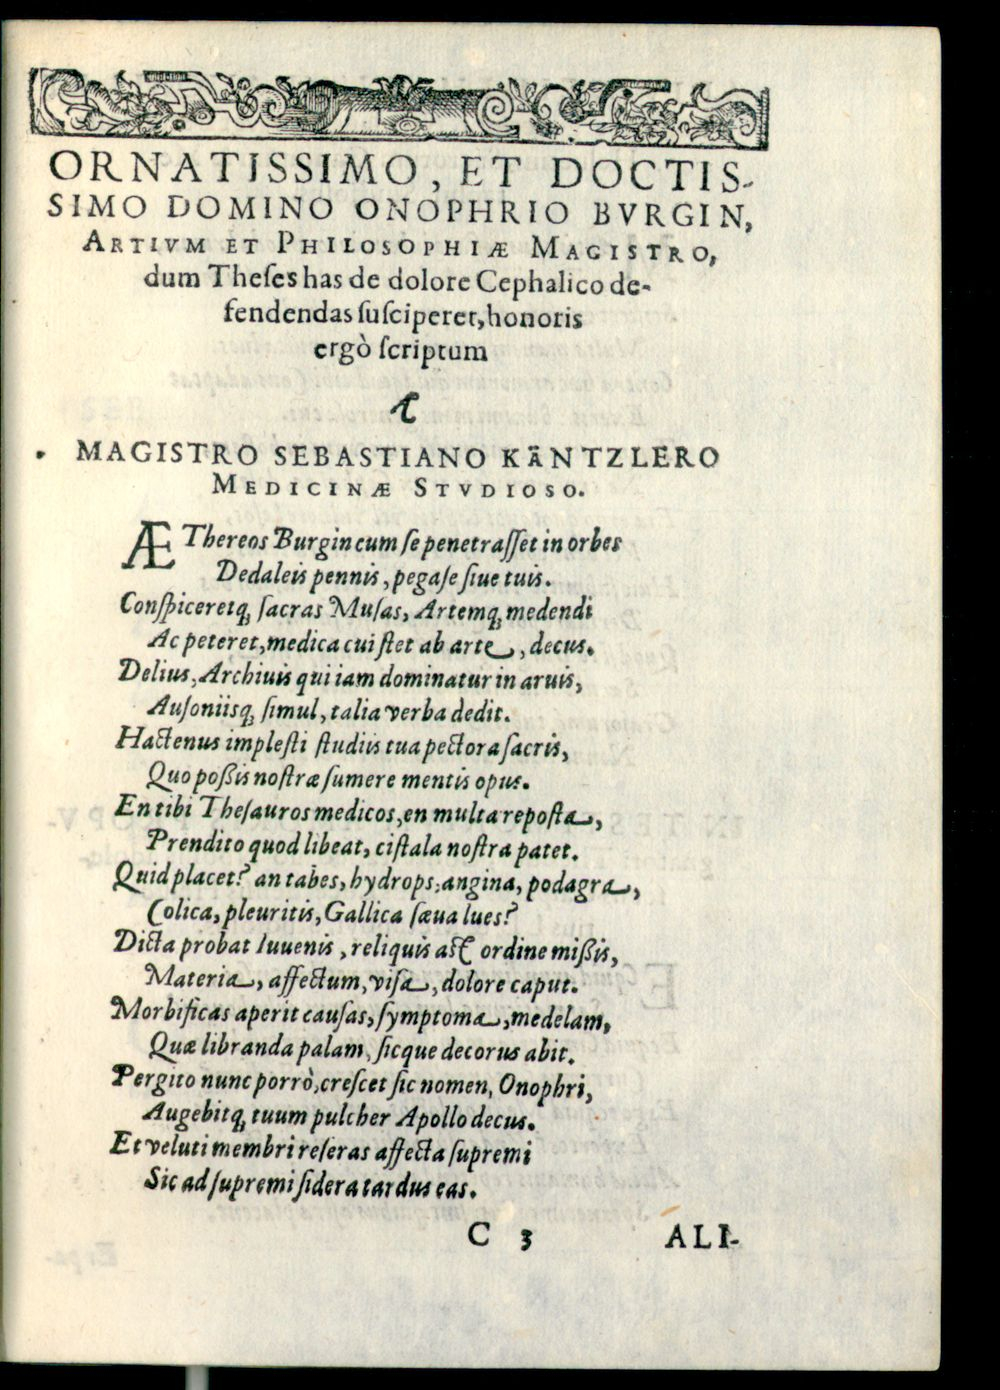 ORNATISSIMO, ET DOCTIS-
SIMO DOMINO ONOPHRIO BVRGIN,
ARTIVM ET PHILOSOPHIÆ MAGISTRO,
dum Theſes has de dolore Cephalico de-
fendendas ſuſciperet, honoris
ergò ſcriptum
à
MAGISTRO SEBASTIANO KÄNTZLERO
MEDICINÆ STVDIOSO.
ÆThereos Burgin cum ſe penetraſſet in orbes
Dedaleis pennis, pegaſe ſiue tuis.
Conſpiceretq́; ſacras Muſas, Artemq́; medendi
Ac peteret, medica cui ſtet ab arte, decus.
Delius, Archiuis qui iam dominatur in aruis,
Auſoniisq́; ſimul, talia verba dedit.
Hactenus impleſti ſtudiis tua pectora ſacris,
Quo poßis noſtræ ſumere mentis opus.
En tibi Theſauros medicos, en multa repoſta,
Prendito quod libeat, ciſtala noſtra patet.
Quid placet? an tabes, hydrops, angina, podagra,
Colica, pleuritis, Gallica ſæua lues?
Dicta probat Iuuenis, reliquis aſt ordine mißis,
Materia, affectum, viſa, dolore caput.
Morbificas aperit cauſas, ſymptoma, medelam,
Quæ libranda palam, ſicque decorus abit.
Pergito nunc porrò, creſcet ſic nomen, Onophri,
Augebitq́; tuum pulcher Apollo decus.
Et veluti membri reſeras affecta ſupremi
Sic ad ſupremi ſidera tardus eas.
C 3 ALI-